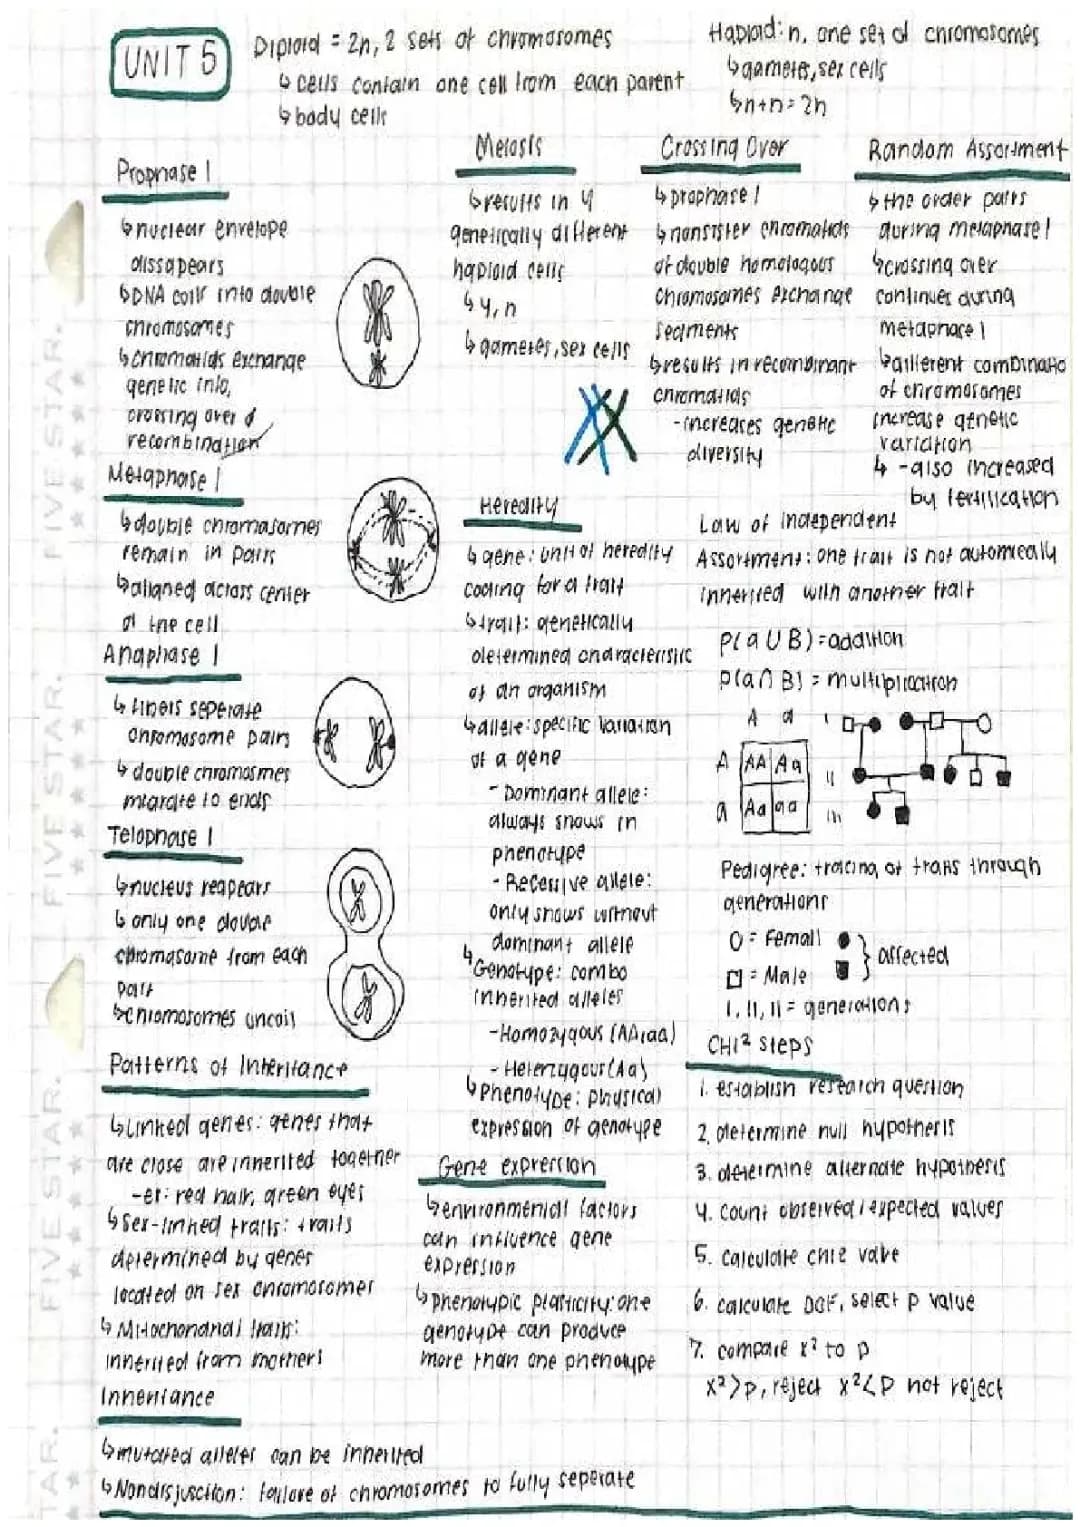 UNIT 5
Diploid = 2n, 2 sets of chromosomes
↳ cells contain one cell from each parent
↳ body cells
Haploid: n, one set of chromosomes
↳ gametes, sex cells
↳ n+n=2n
Prophase I
↳ nuclear envelope
dissapears
↳ DNA coils into double
chromosomes
↳ chromatids exchange
genetic info,
crossing over &
recombination
Metaphase I
↳ double chromosomes
remain in pairs
↳ alligned across center
of the cell
Anaphase I
↳ fibers seperate
chromosome pairs
↳ double chromosmes
migrate to ends
Telophase I
↳ nucleus reapears
↳ only one double
chromosome from each
pair
↳ chromosomes uncoil
Patterns of Inheritance
↳ Linked genes: genes that
are close are inherited together
- ex: red hair, green eyes
↳ Sex-linked traits: traits
determined by genes
located on sex chromosomes
↳ Mitochondrial traits:
inherited from mothers
Inheritance
↳ mutated alleles can be inherited
↳ Nondisjunction: failure of chromosomes to fully seperate
Meiosis
↳ results in 4
genetically different
haploid cells
↳ 4, n
↳ gametes, sex cells
Crossing Over
↳ prophase I
↳ nonsister chromatids
of double homologous
chromosomes exchange
segments
↳ results in recombinant
chromatids
- increases genetic
diversity
Random Assortment
↳ the order pairs
during metaphase I
↳ crossing over
continues during
metaphase I
↳ different combinatio
of chromosomes
increase genetic
variation
↳ - also increased
by fertilication
Heredity
↳ gene: unit of heredity
coding for a trait
↳ trait: genetically
determined characteristic
of an organism
↳ allele: specific variation
of a gene
- Dominant allele:
always shows in
phenotype
- Recessive allele:
only shows without
dominant allele
↳ Genotype: combo
inherited alleles
- Homozygous (AA,aa)
- Heterzygous (Aa)
↳ Phenotype: physical
expression of genotype
Gene expression
↳ environmental factors
can influence gene
expression
↳ phenotypic plasticity: one
genotype can produce
more than one phenotype
Law of Independent
Assortment: one trait is not automically
inherited with another trait
P(a U B) = addition
P(a ∩ B) = multiplication
A a
A AA Aa
a Aa aa
I
II
III
Pedigree: tracing of traits through
generations
O = Femall
□ = Male
} affected
I, II, II = generations
CHI² steps
1. establish research question
2. determine null hypothesis
3. determine alternate hypothesis
4. count observed/expected values
5. calculate chi2 valve
6. calculate DoF, select p value
7. compare x² to p
x²>p, reject x²<p not reject
FIVE STAR.
FIVE STAR.
FIVE STAR.
TAR.